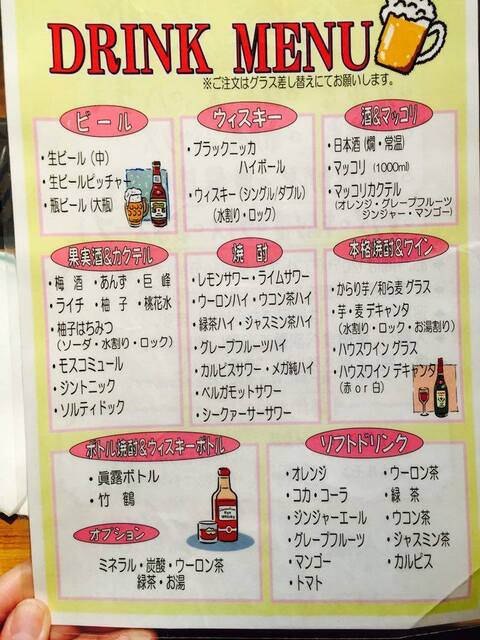 DRINK MENU
※ご注文はグラス差し替えにてお願いします。
ビール
・生ビール(中)
・生ビールピッチャー
・瓶ビール(大瓶)
ウィスキー
・ブラックニッカ
ハイボール
・ウィスキー(シングル/ダブル)
(水割り・ロック)
酒&マッコリ
・日本酒(燗・常温)
・マッコリ (1000ml)
・マッコリカクテル
(オレンジ・グレープフルーツ
ジンジャー・マンゴー)
果実酒&カクテル
・梅 酒 ・あんず ・巨 峰
・ライチ ・柚 子 ・桃花水
・柚子はちみつ
(ソーダ・水割り・ロック)
・モスコミュール
・ジントニック
・ソルティドック
焼 酎
・レモンサワー・ライムサワー
・ウーロンハイ・ウコン茶ハイ
・緑茶ハイ・ジャスミン茶ハイ
・グレープフルーツハイ
・カルピスサワー・メガ純ハイ
・ベルガモットサワー
・シークァーサーサワー
本格焼酎&ワイン
・からり芋/和ら麦 グラス
・芋・麦 デキャンタ
(水割り・ロック・お湯割り)
・ハウスワイン グラス
・ハウスワイン デキャンタ
(赤 or 白)
ボトル焼酎&ウィスキーボトル
・眞露ボトル
・竹 鶴
オプション
ミネラル・炭酸・ウーロン茶
緑茶・お湯
ソフトドリンク
・オレンジ ・ウーロン茶
・コカ・コーラ ・緑 茶
・ジンジャーエール ・ウコン茶
・グレープフルーツ ・ジャスミン茶
・マンゴー ・カルピス
・トマト